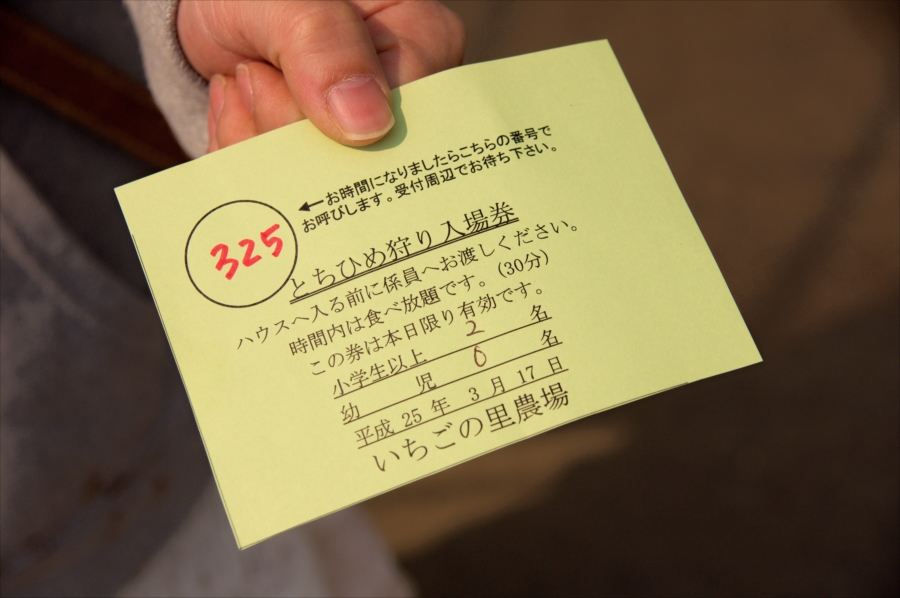 ←お時間になりましたらこちらの番号で
お呼びします。受付周辺でお待ち下さい。
325
とちひめ狩り入場券
ハウスへ入る前に係員へお渡しください。
時間内は食べ放題です。(30分)
この券は本日限り有効です。
小学生以上 2 名
幼児 0 名
平成 25 年 3 月 17 日
いちごの里農場